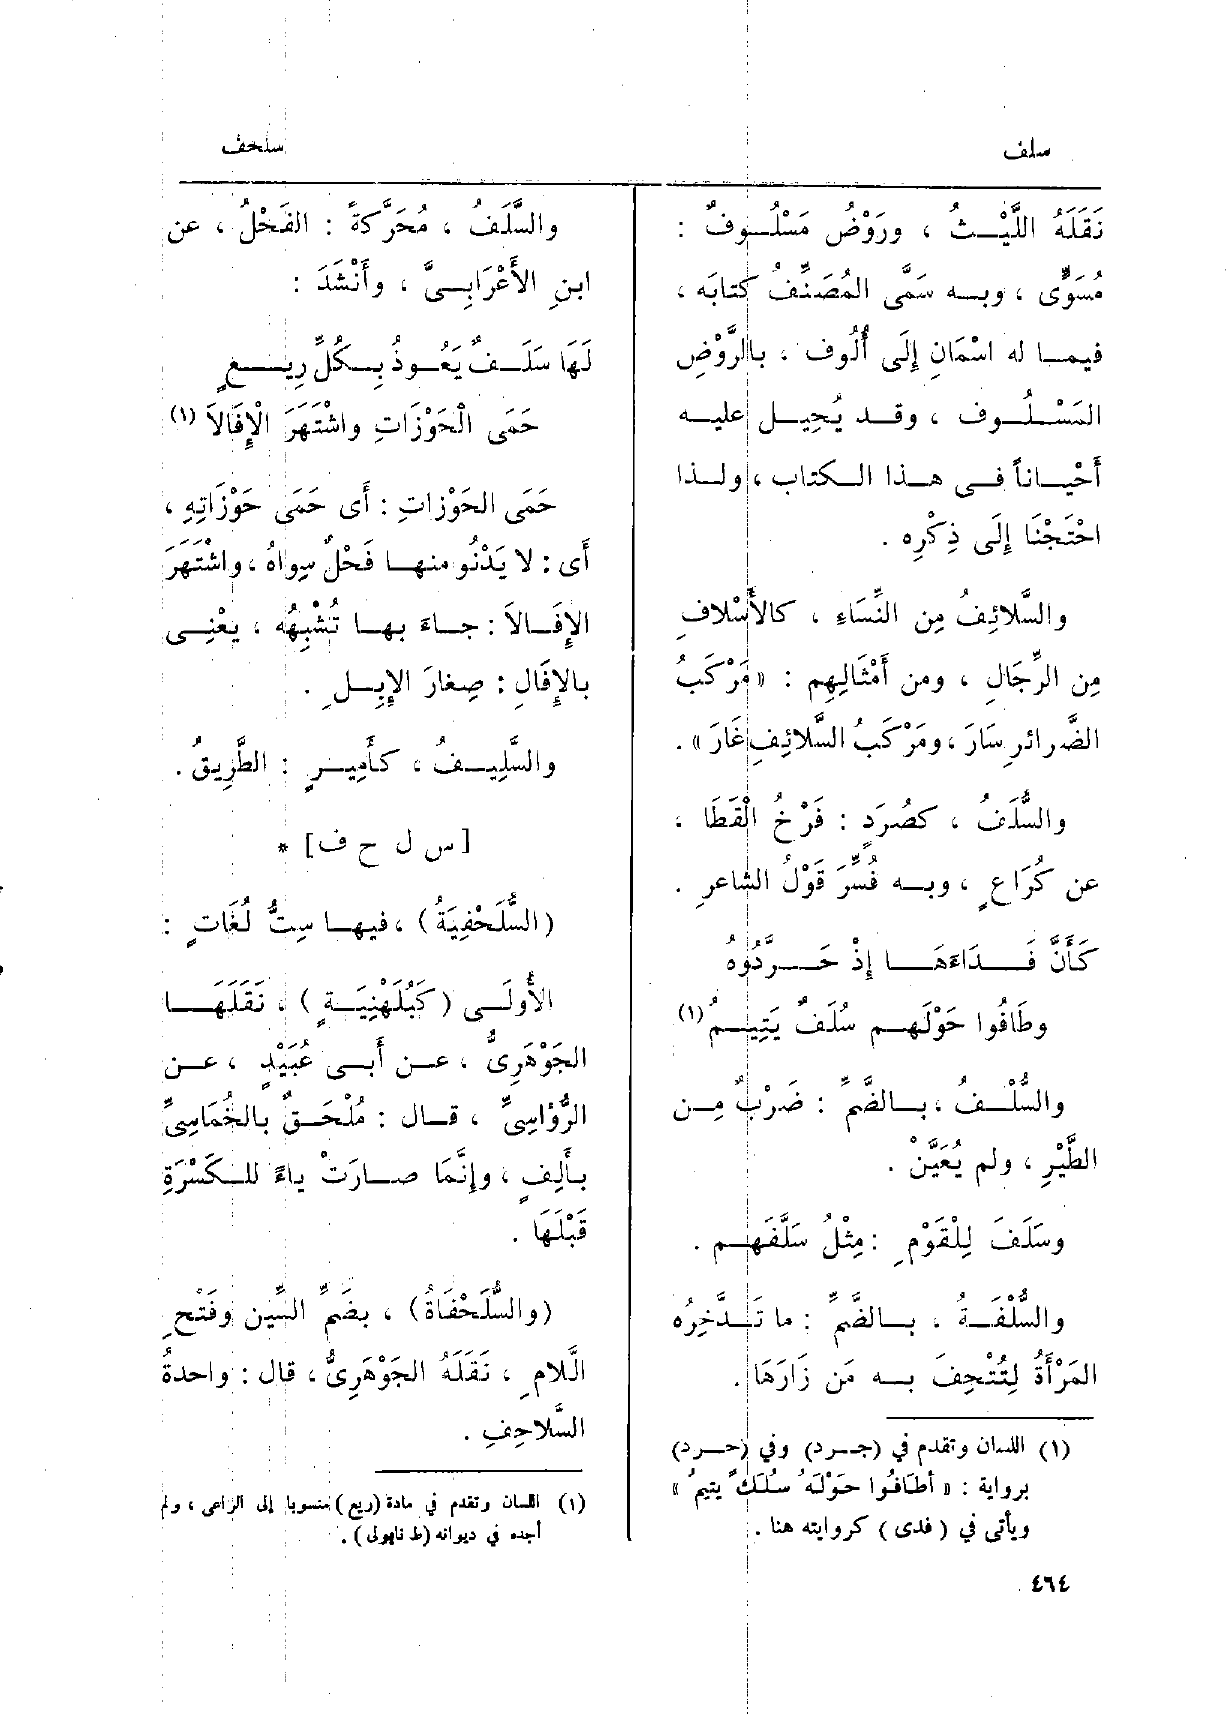 سلف
سلحف
نَقَلَهُ اللَّيْثُ ، ورَوْضٌ مَسْلُوفٌ :
مُسَوًّى ، وبه سَمَّى المُصَنِّفُ كتابَه ،
فيما له اسْمَانِ إِلَى أُلُوف ، بالرَّوْضِ
المَسْلُوف ، وقد يُحِيل عليه
أَحْياناً فى هذا الكتاب ، ولذا
احْتَجْنَا إِلَى ذِكْرِه .
والسَّلائِفُ مِن النِّسَاءِ ، كالأَسْلافِ
مِن الرِّجَالِ ، ومن أَمْثَالِهِم : «مَرْكَبُ
الضَّرائرِ سَارَ ، ومَرْكَبُ السَّلائِفِ غَارَ» .
والسُّلَفُ ، كصُرَدٍ : فَرْخُ الْقَطَا ،
عن كُرَاعٍ ، وبه فُسِّرَ قَوْلُ الشاعرِ .
كَأَنَّ فَدَاءَهَا إِذْ حَرَّدُوهُ
وطَافُوا حَوْلَهم سُلَفٌ يَتِيمُ (١)
والسُّلْفُ ، بالضَّمِّ : ضَرْبٌ مِن
الطَّيْرِ ، ولم يُعَيَّنْ .
وسَلَفَ لِلْقَوْمِ : مِثْلُ سَلَّفَهم .
والسُّلْفَةُ ، بالضَّمِّ : ما تَدَّخِرُه
المَرْأَةُ لِتُتْحِفَ به مَن زَارَهَا .
(١) اللسان وتقدم في (جرد) وفي (حرد)
برواية : «أطافُوا حَوْلَهُ سُلَكٌ يتيمُ»
ويأتى في (فدى) كروايته هنا .
والسَّلَفُ ، مُحَرَّكةً : الفَحْلُ ، عن
ابنِ الأَعْرَابِىِّ ، وأَنْشَدَ :
لَهَا سَلَفٌ يَعُوذُ بِكُلِّ رِيعٍ
حَمَى الْحَوْزَاتِ واشْتَهَرَ الْإِفَالاَ (١)
حَمَى الحَوْزَاتِ : أَى حَمَى حَوْزَاتِهِ ،
أَى : لا يَدْنُو منها فَحْلٌ سِواهُ ، واشْتَهَرَ
الإِفَالاَ : جاءَ بها تُشْبِهُه ، يعْنِى
بالإِفَالِ : صِغارَ الإِبِلِ .
والسَّلِيفُ ، كأَمِيرٍ : الطَّرِيقُ .
[س ل ح ف] *
(السُّلَحْفِيَةُ) ، فيها سِتُّ لُغَاتٍ :
الأُولَى (كَبُلَهْنِيَةٍ) ، نَقَلَهَا
الجَوْهَرِىُّ ، عن أَبى عُبَيْدٍ ، عن
الرُّؤاسِىِّ ، قال : مُلْحَقٌ بالخُمَاسِىِّ
بأَلِفٍ ، وإِنَّمَا صارَتْ ياءً للكَسْرَةِ
قَبْلَهَا .
(والسُّلَحْفَاةُ) ، بضَمِّ السِّين وفَتْحِ
الَّلامِ ، نَقَلَهُ الجَوْهَرِىُّ ، قال : واحدةُ
السَّلاحِفِ .
(١) اللسان وتقدم في مادة (ريع) منسوبا إلى الراعى ، ولم
أجده في ديوانه (ط ناپولى) .
٤٦٤